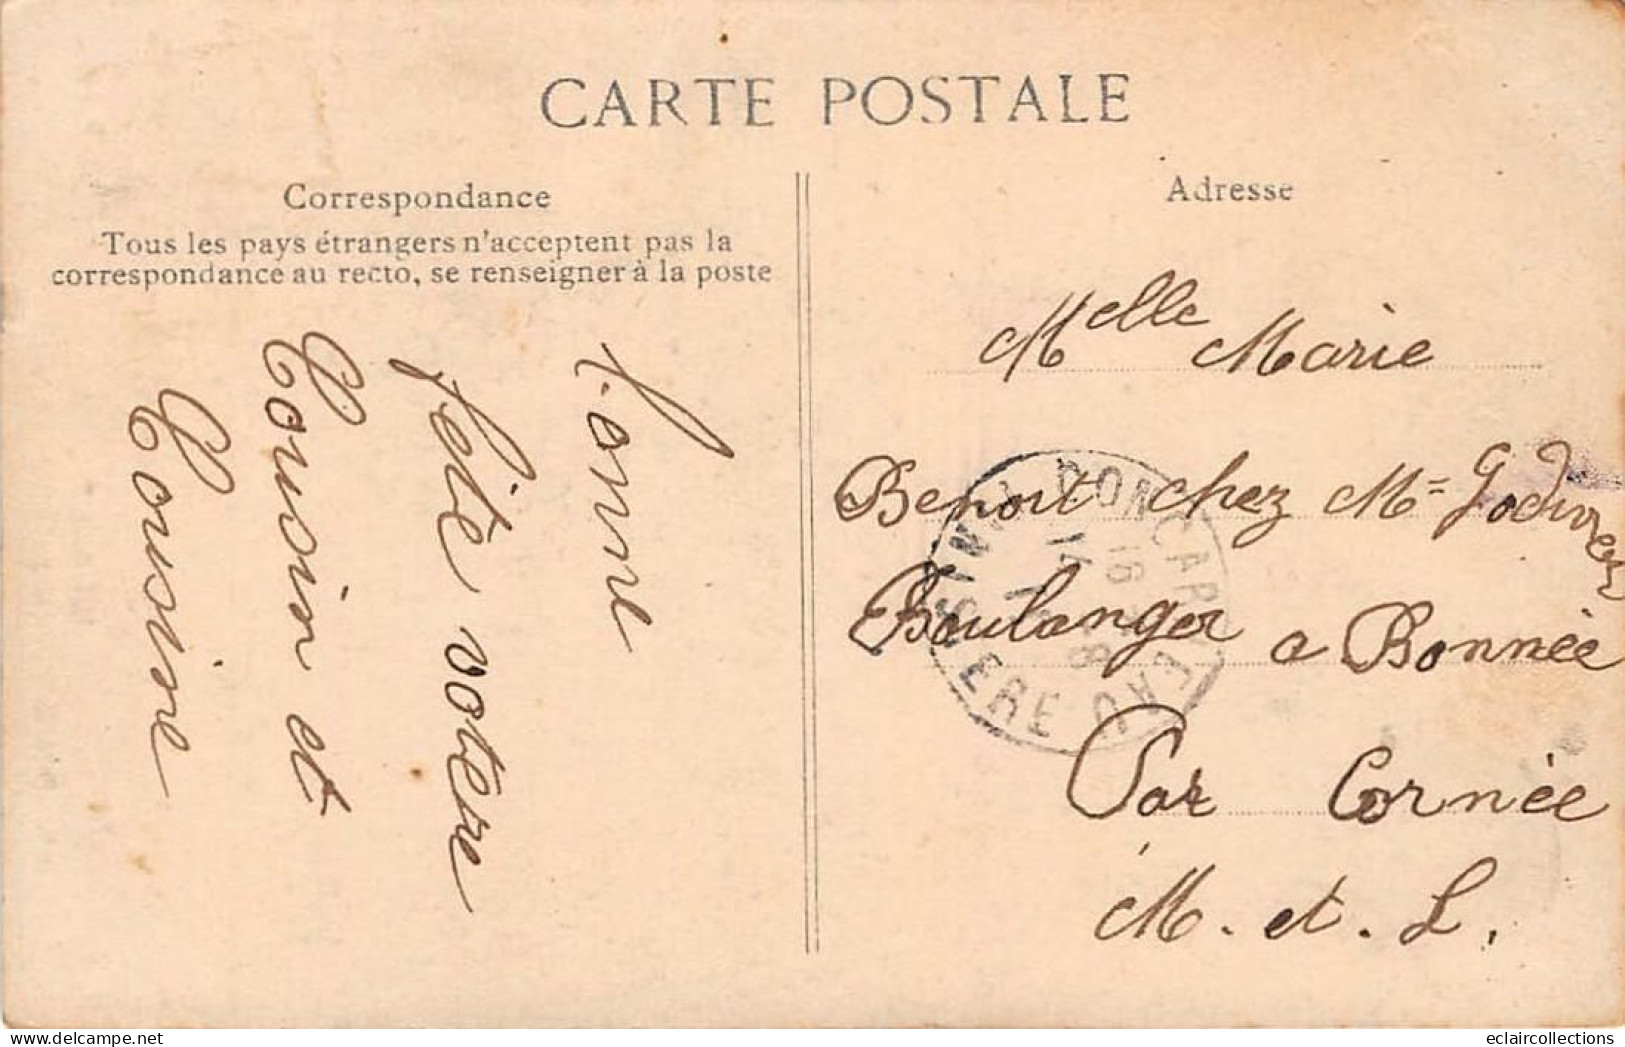 CARTE POSTALE
Correspondance
Tous les pays étrangers n'acceptent pas la
correspondance au recto, se renseigner à la poste
Bonne
fête votre
Cousin et
Cousine
Adresse
Melle Marie
Benoit chez Mr Godivier
Boulanger a Bonnée
Par Cornée
M. et. L.
eclaircollections